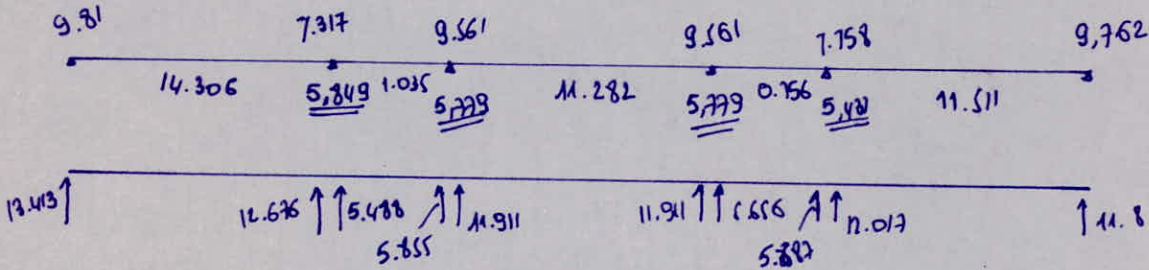 9.81 7.317 9.561 9.561 7.758 9,762
14.306 5,849 1.035 5,779 11.282 5,779 0.756 11.511
13.413 12.676 5.488 11.911 11.911 11.8
5.855